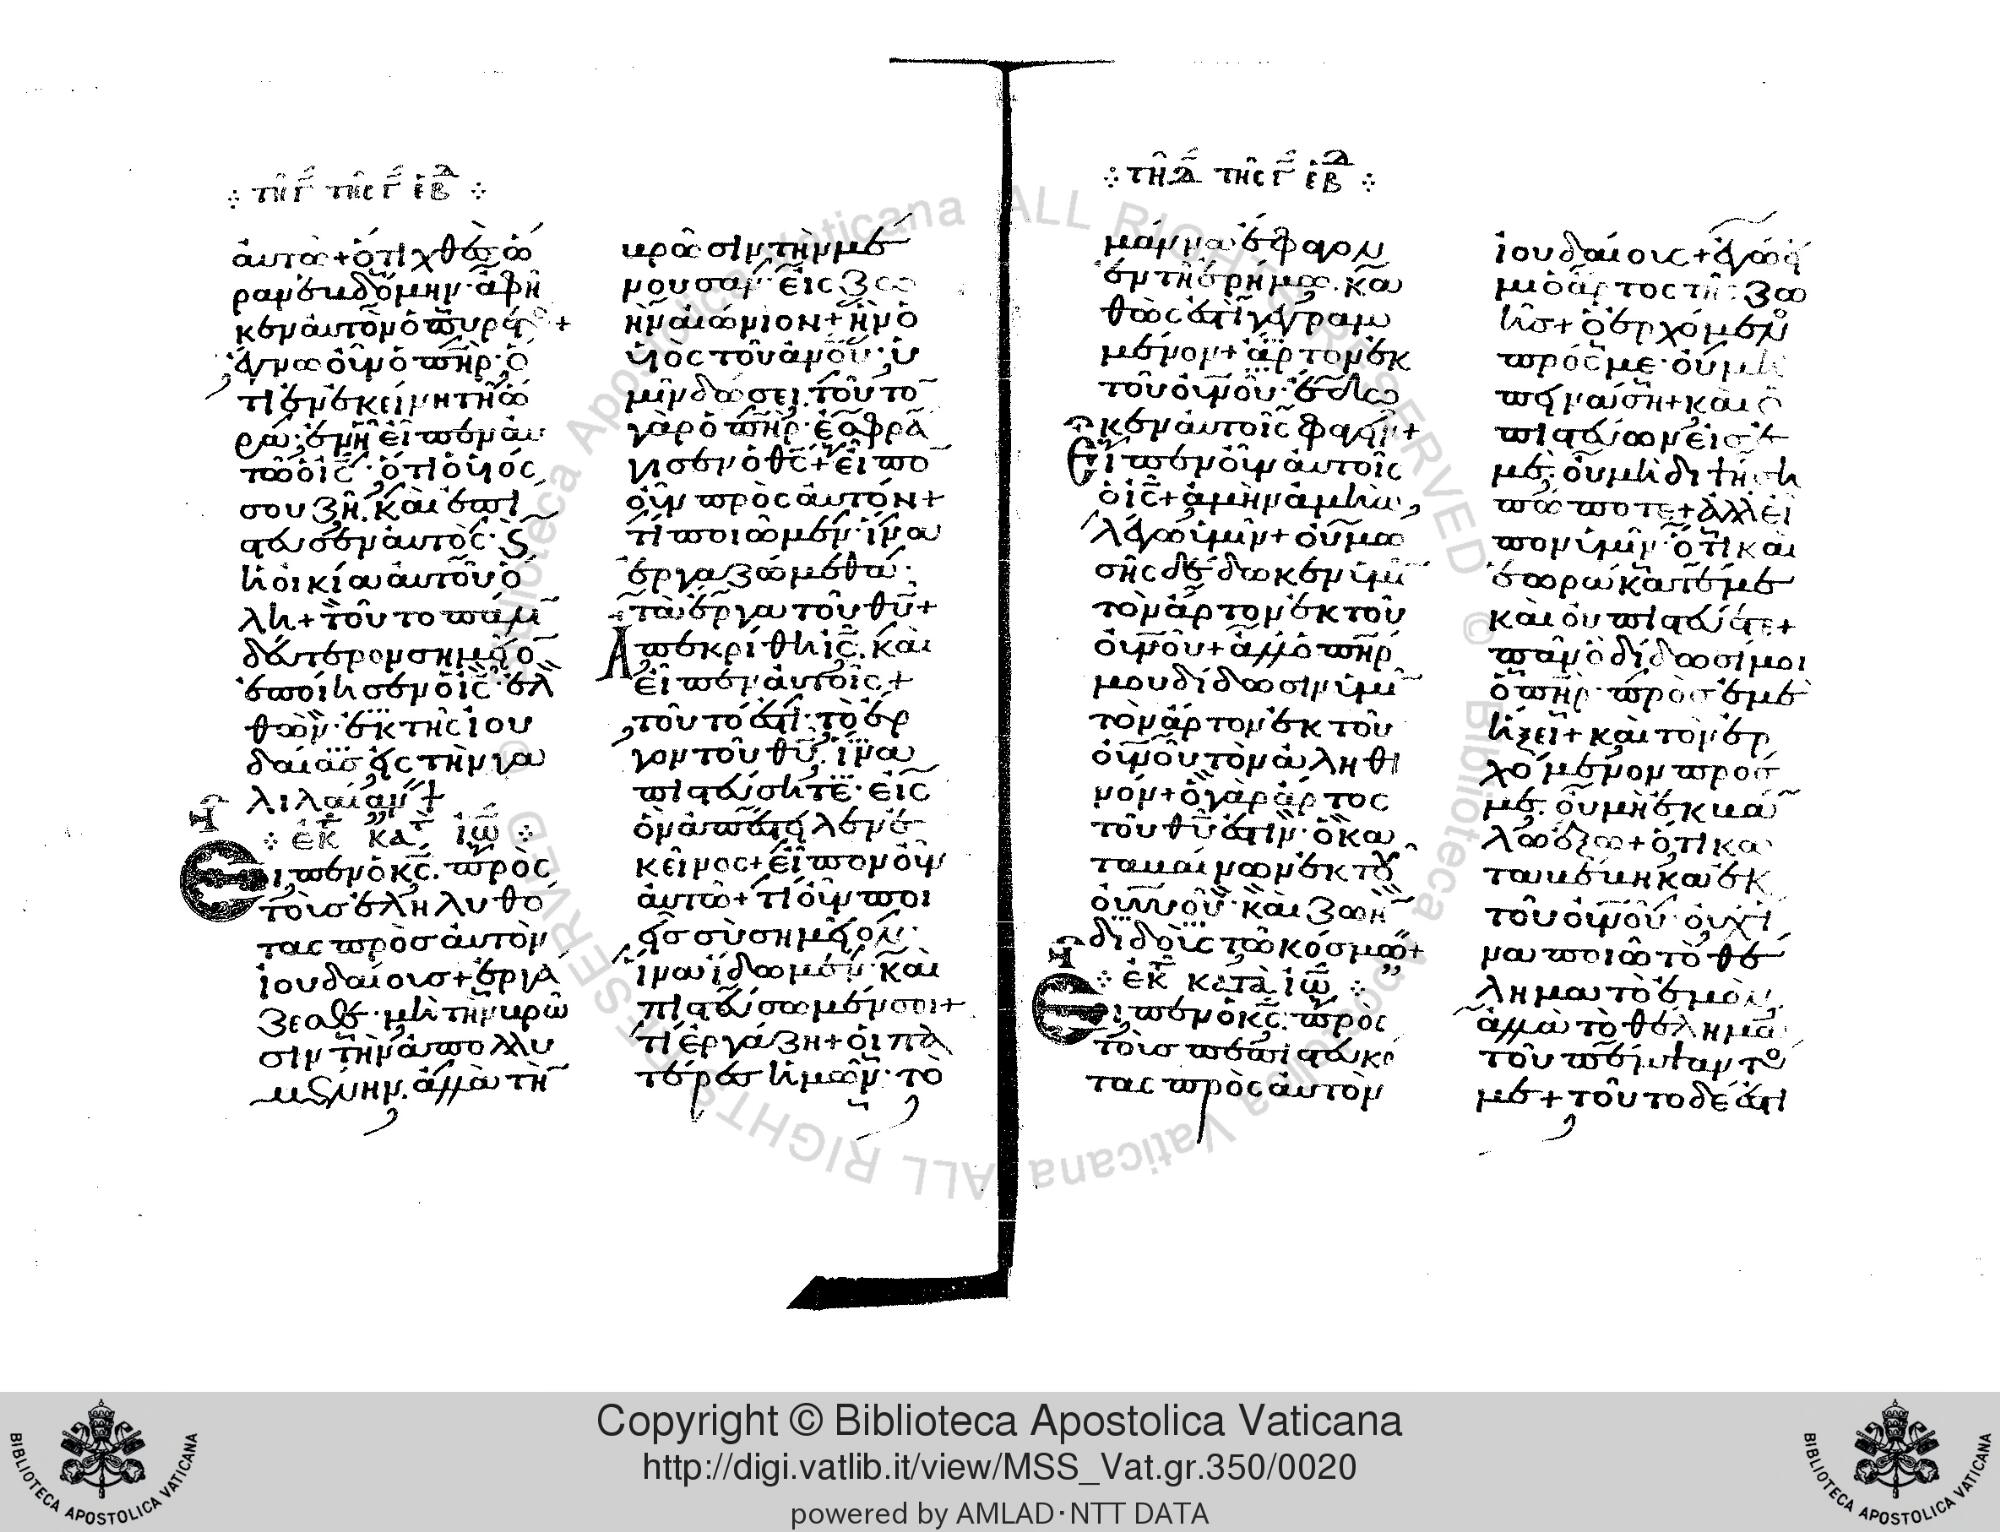 τῆ γ̅ τῆς γ̅ ἑβδ
ἀυτῶ + ὅτι χθὲς ὥ
ραν ἑβδόμην· ἀφῆ
κεν ἀυτὸν ὁ πυρετός +
ἔγνω οὖν ὁ πη̅ρ· ὅ
τι ἐν ἐκείνη τῆ ὥ
ρα· ἐν ἧ εἶπεν ἀυ
τῶ ὁ ι̅ς̅· ὅτι ὁ υἱός
σου ζῆ. καὶ ἐπί
στευσεν ἀυτὸς· κ(αὶ)
ἡ οἰκία ἀυτοῦ ὅ
λη + τοῦτο πάλιν
δεύτερον σημεῖο
ἐποίησεν ὁ ι̅ς̅· ἐλ
θὼν· ἐκ τῆς ἰου
δαίας εἰς τὴν γα
λιλαίαν +
ἐκ κατ ἰω
Εἶπεν ὁ κ̅ς̅. πρὸς
τοὺς ἐληλυθό
τας πρὸς ἀυτὸν
ἰουδαίους + ἐργά
ζεσθε· μὴ τὴν βρῶ
σιν τὴν ἀπολλυ
μένην. ἀλλὰ τὴ
βρῶσιν τὴν μέ
νουσαν· εἰς ζωὴν
ἣν αἰώνιον + ἣν ὁ
υἱὸς τοῦ ἀνο̅υ· ὑ
μῖν δώσει. τοῦτο
γὰρ ὁ πη̅ρ· ἐσφρά
γισεν ὁ θ̅ς̅ + εἶπο
οὖν πρὸς ἀυτόν +
τί ποιῶμεν· ἵνα
ἐργαζώμεθα·
τὰ ἔργα τοῦ θ̅υ̅ +
Ἀπεκρίθη ι̅ς̅. καὶ
εἶπεν ἀυτοῖς +
τοῦτό ἐστι· τὸ ἔρ
γον τοῦ θ̅υ̅. ἵνα
πιστεύσητε· εἰς
ὃν ἀπέστειλεν ἐ
κεῖνος + εἶπον οὖν
ἀυτῶ + τί οὖν ποι
εῖς σὺ σημεῖον·
ἵνα ἴδωμεν· καὶ
πιστεύσωμέν σοι +
τί ἐργάζη + οἱ πα
τέρες ἡμῶν· τὸ
τῆ δ̅ τῆς γ̅ ἑβδ
μάννα ἔφαγον
ἐν τῆ ἐρήμω. κα
θώς ἐστι γεγραμ
μένον + ἄρτον ἐκ
τοῦ ου̅νου̅· ἔδω
κεν ἀυτοῖς φαγεῖν +
Εἶπεν οὖν ἀυτοῖς
ὁ ι̅ς̅ + ἀμὴν ἀμὴν
λέγω ὑμῖν + οὐ μω
σῆς δέδωκεν ὑμῖ
τὸν ἄρτον ἐκ τοῦ
ου̅νου̅ + ἀλλ' ὁ πη̅ρ
μου δίδωσιν ὑμῖ
τὸν ἄρτον ἐκ τοῦ
ου̅νου̅ τὸν ἀληθι
νόν + ὁ γὰρ ἄρτος
τοῦ θ̅υ̅ ἐστιν· ὁ κα
ταβαίνων ἐκ τοῦ
ου̅νου̅· καὶ ζωὴν
διδοὺς τῶ κόσμω +
ἐκ κατὰ ἰω
Εἶπεν ὁ κ̅ς̅. πρὸς
τοὺς πεπιστευκό
τας πρὸς ἀυτὸν
ἰουδαίους + ἐγώ εἰ
μι ὁ ἄρτος τῆς ζω
ῆς + ὁ ἐρχόμενος
πρός με· οὐ μὴ
πεινάση + καὶ ὁ
πιστεύων εἰς ἐ
μέ. οὐ μὴ διψήση
πώποτε + ἀλλ' εἶ
πον ὑμῖν· ὅτι καὶ
ἑωράκατέ με
καὶ οὐ πιστεύετε +
πᾶν ὃ δίδωσί μοι
ὁ πη̅ρ· πρὸς ἐμὲ
ἥξει + καὶ τὸν ἐρ
χόμενον πρός
με. οὐ μὴ ἐκβά
λω ἔξω + ὅτι κα
ταβέβηκα ἐκ
τοῦ ου̅νου̅· οὐχ ἵ
να ποιῶ τὸ θέ
λημα τὸ ἐμὸν.
ἀλλὰ τὸ θέλημα
τοῦ πέμψαντός
με + τοῦτο δέ ἐστι
Biblioteca Apostolica Vaticana ALL RIGHTS RESERVED ©
Biblioteca Apostolica Vaticana ALL RIGHTS RESERVED ©
Copyright © Biblioteca Apostolica Vaticana
http://digi.vatlib.it/view/MSS_Vat.gr.350/0020
powered by AMLAD·NTT DATA
BIBLIOTECA APOSTOLICA VATICANA
BIBLIOTECA APOSTOLICA VATICANA